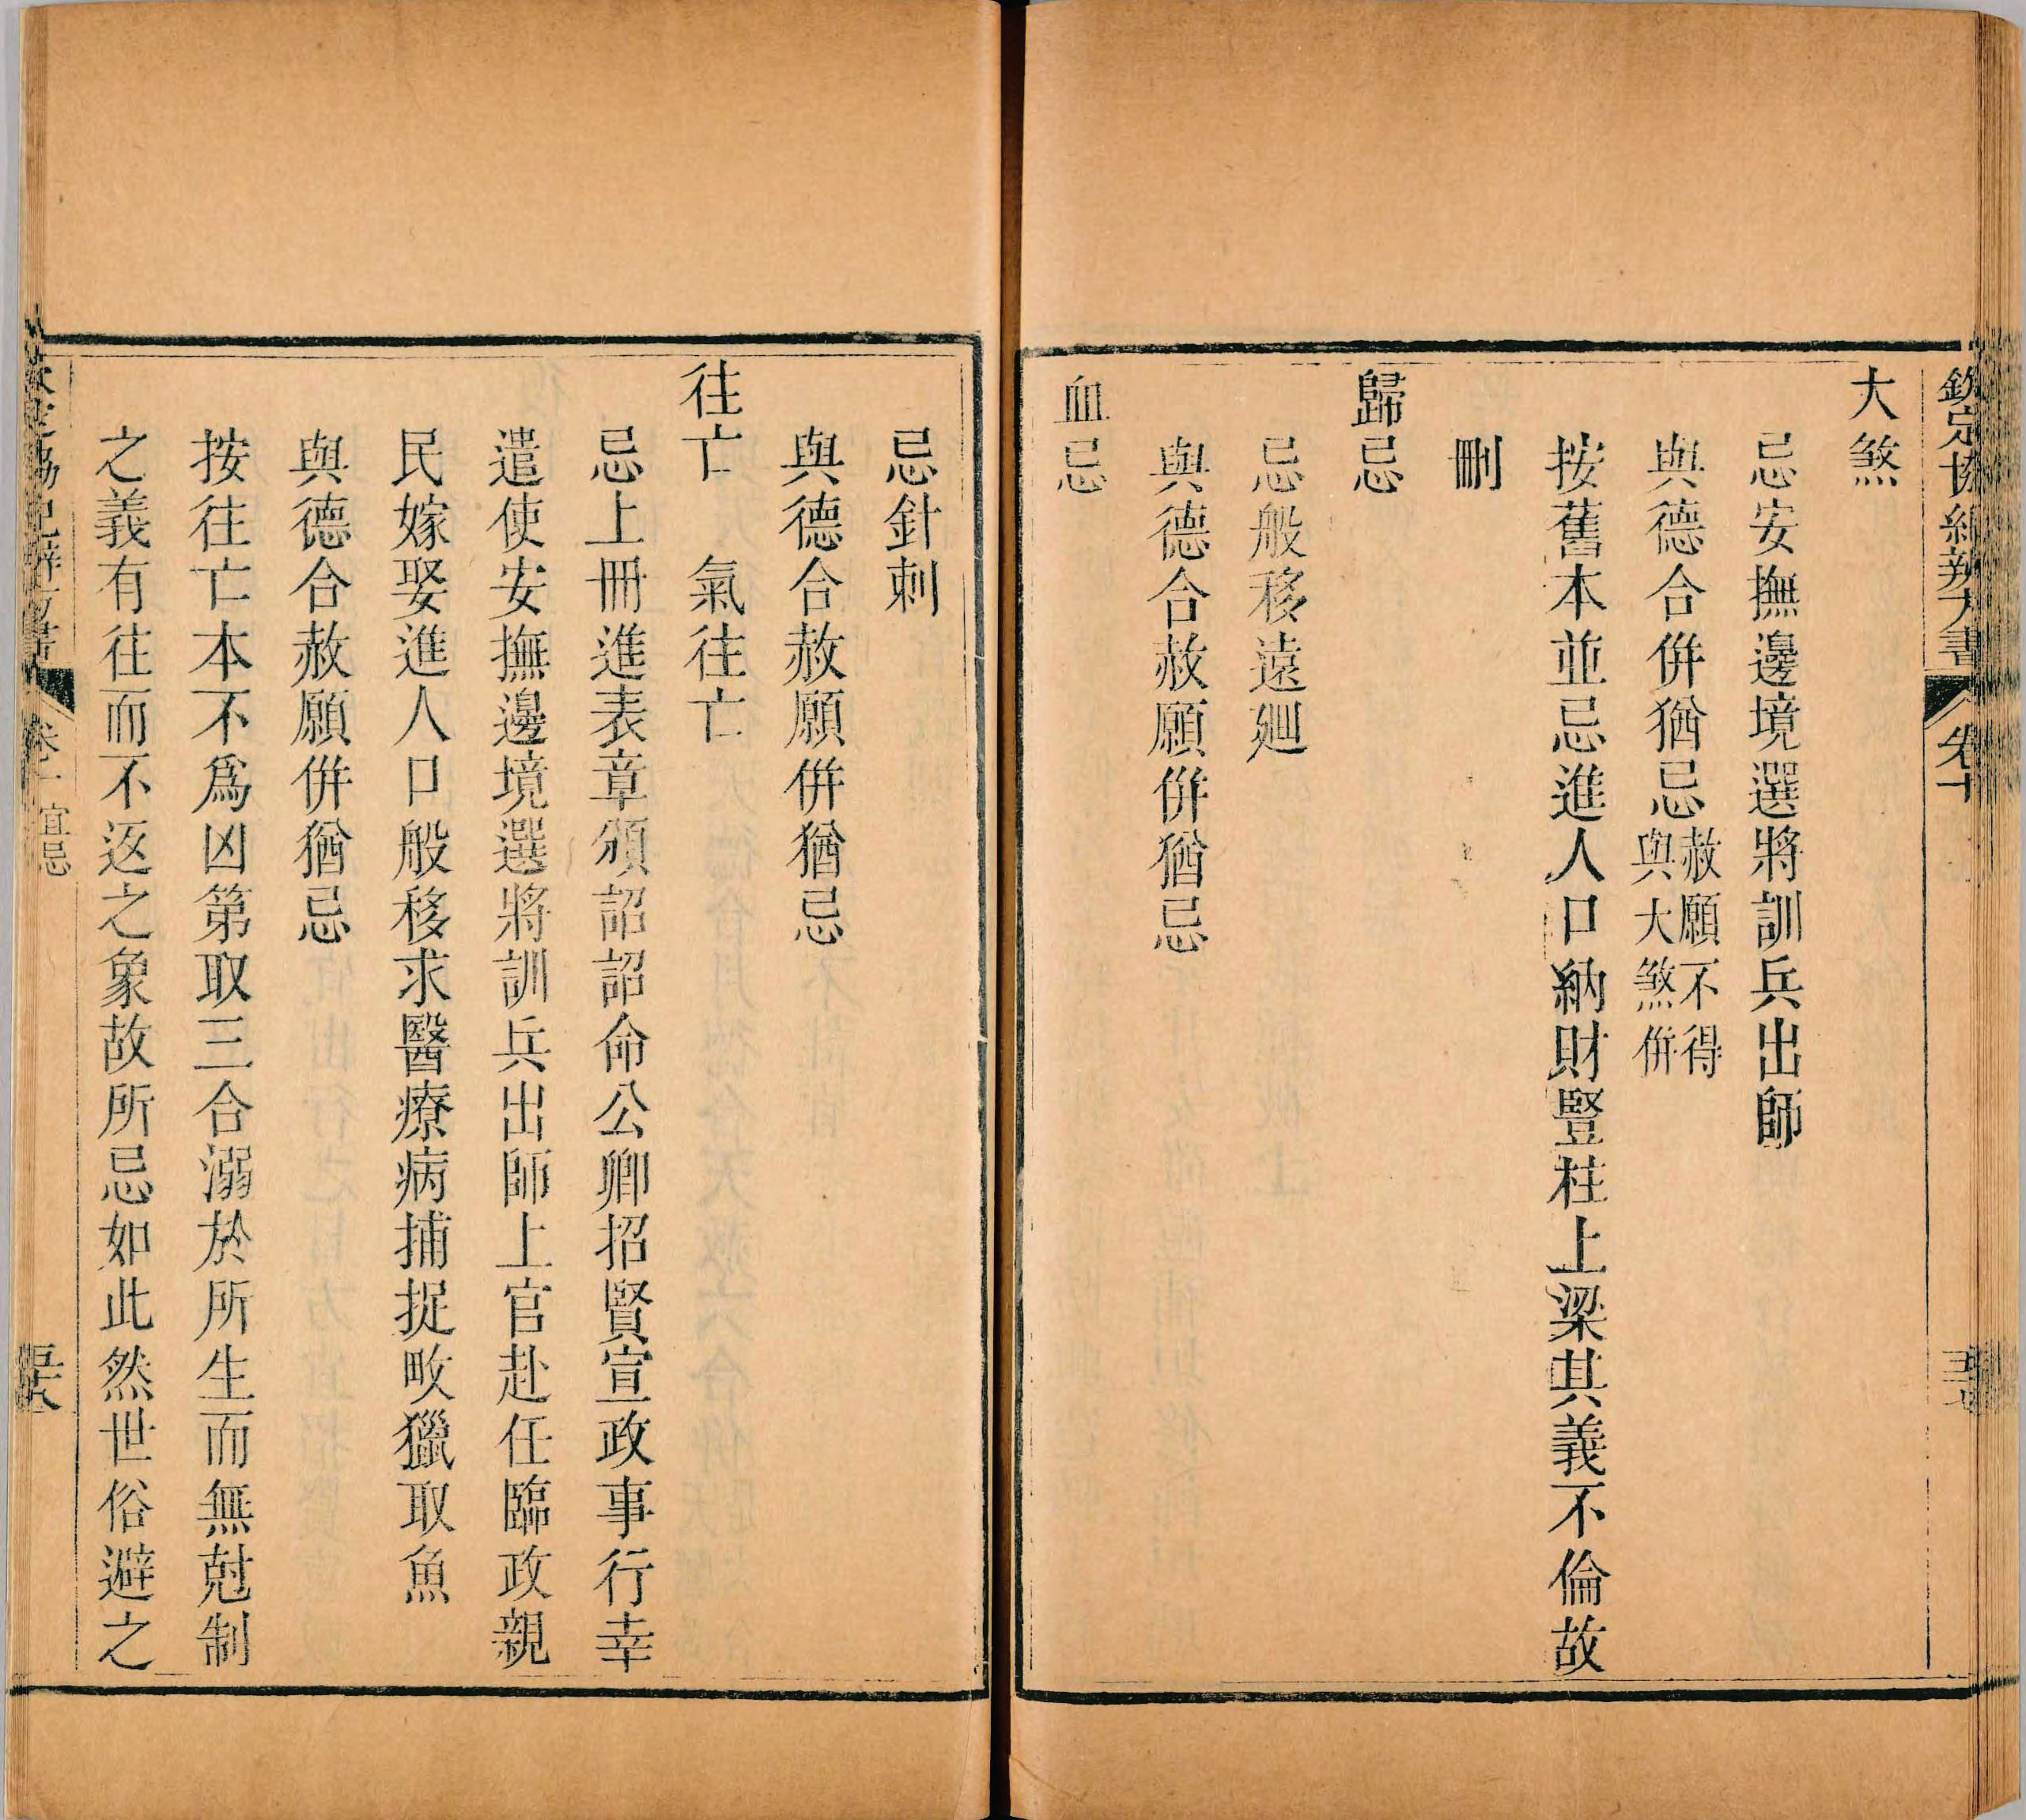 欽定協紀辨方書 卷十
大煞
忌安撫邊境選將訓兵出師
與德合併猶忌赦願不得與大煞併
按舊本並忌進人口納財豎柱上梁其義不倫故
刪
歸忌
忌般移遠廻
與德合赦願併猶忌
血忌
忌針刺
與德合赦願併猶忌
往亡 氣往亡
忌上冊進表章頒詔詔命公卿招賢宣政事行幸
遣使安撫邊境選將訓兵出師上官赴任臨政親
民嫁娶進人口般移求醫療病捕捉畋獵取魚
與德合赦願併猶忌
按往亡本不爲凶第取三合溺於所生而無尅制
之義有往而不返之象故所忌如此然世俗避之
宜忌